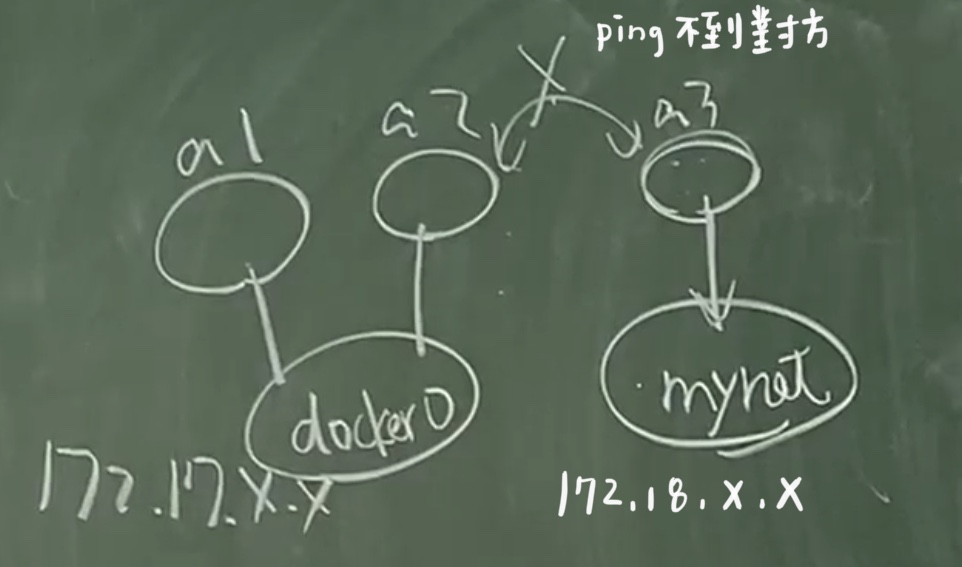 ping 不到對方
a1
a2
a3
X
docker0
mynet
172.17.X.X
172.18.X.X